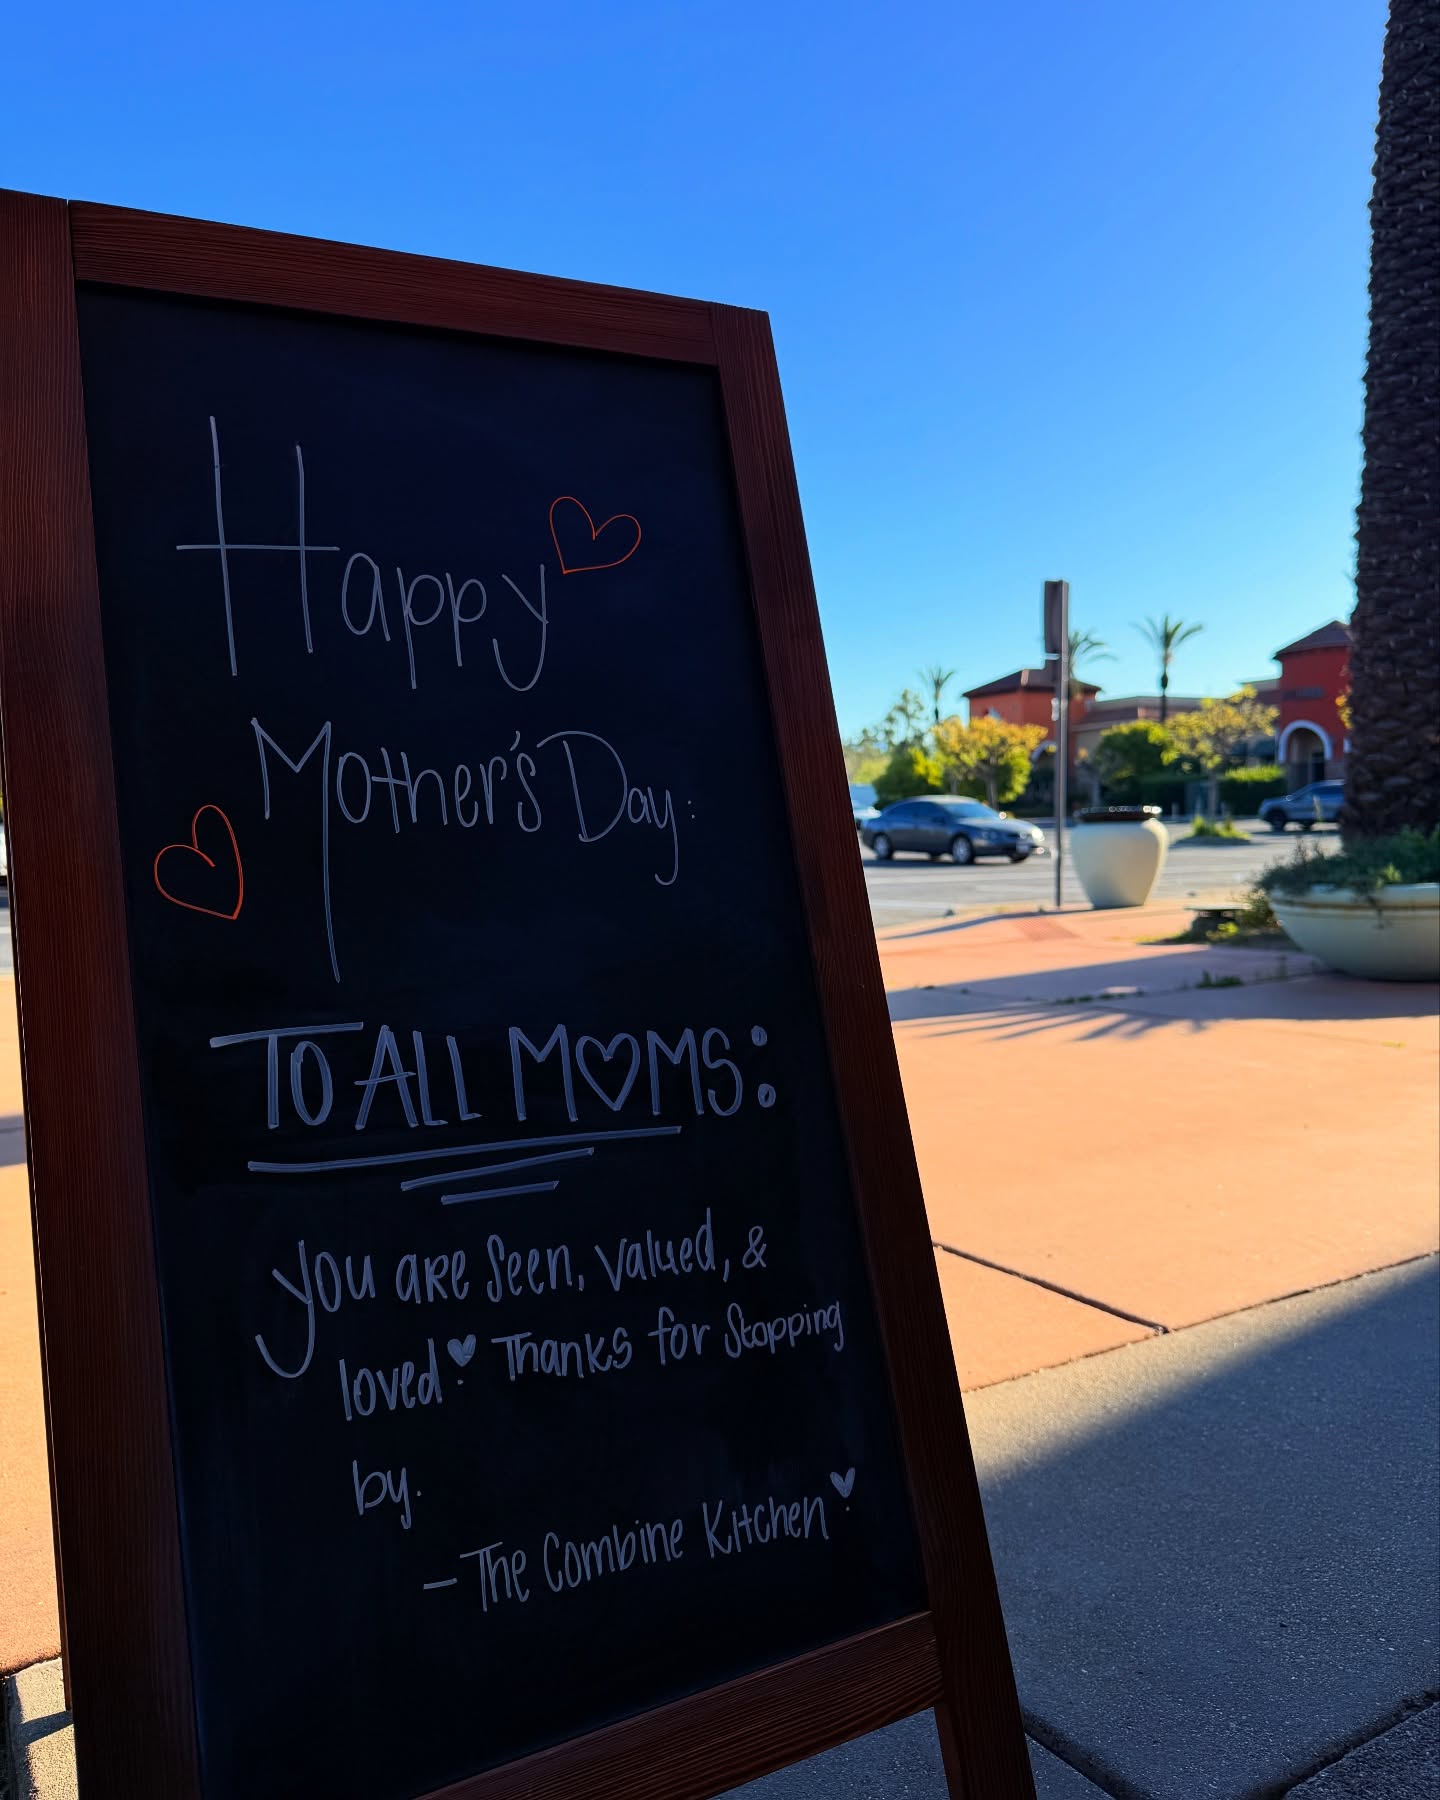 Happy
Mother's Day:
TO ALL MOMS:
you are seen, valued, &
loved! Thanks for stopping
by.
- The Combine Kitchen!